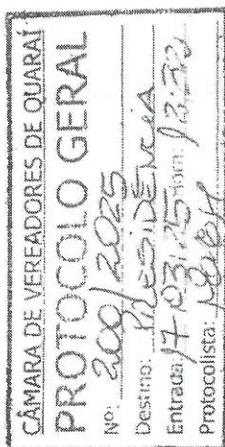 CÂMARA DE VEREADORES DE QUARAÍ
PROTOCOLO GERAL
Nº: 200/2025
Destino: PRESIDÊNCIA
Entrada 17/03/25 Hora:
Protocolista: